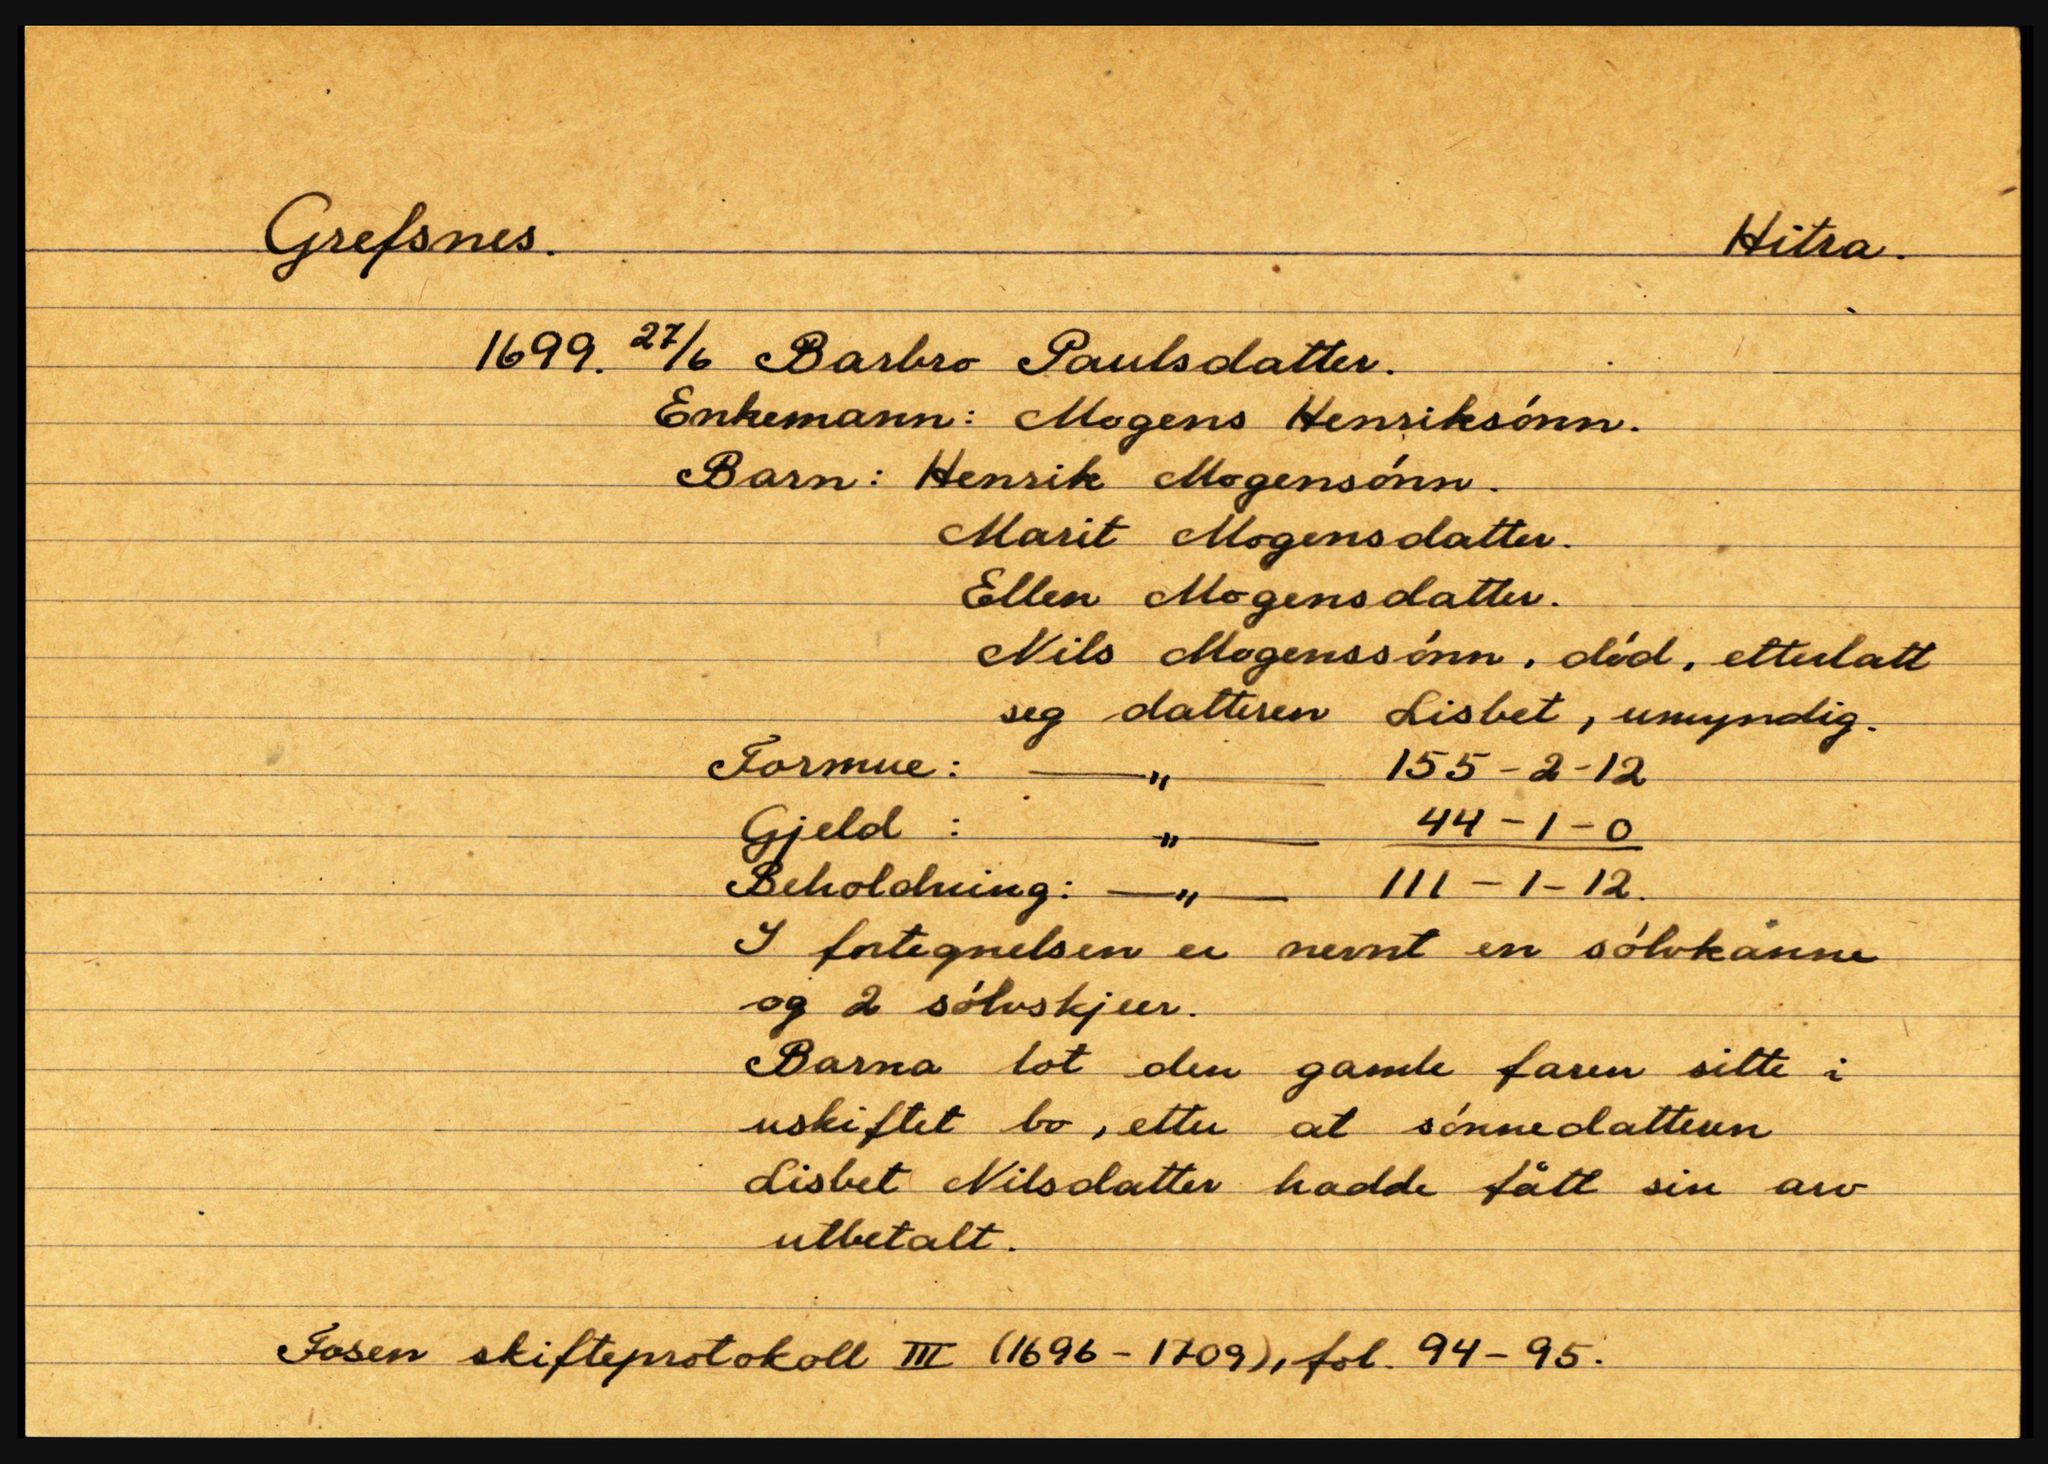 Grefsnes. Hitra.
1699. 27/6 Barbro Paulsdatter.
Enkemann: Mogens Henriksónn.
Barn: Henrik Mogensónn.
Marit Mogensdatter.
Ellen Mogensdatter.
Nils Mogenssónn, dód, etterlatt
seg datteren Lisbet, umyndig.
Formue: —„— 155-2-12
Gjeld : „— 44-1-0
Beholdning: —„— 111-1-12.
I fortegnelsen er nevnt en sólvkanne
og 2 sólvskjeer.
Barna lot den gamle faren sitte i
uskiftet bo, etter at sónnedatteren
Lisbet Nilsdatter hadde fått sin arv
utbetalt.
Fosen skifteprotokoll III (1696-1709), fol. 94-95.